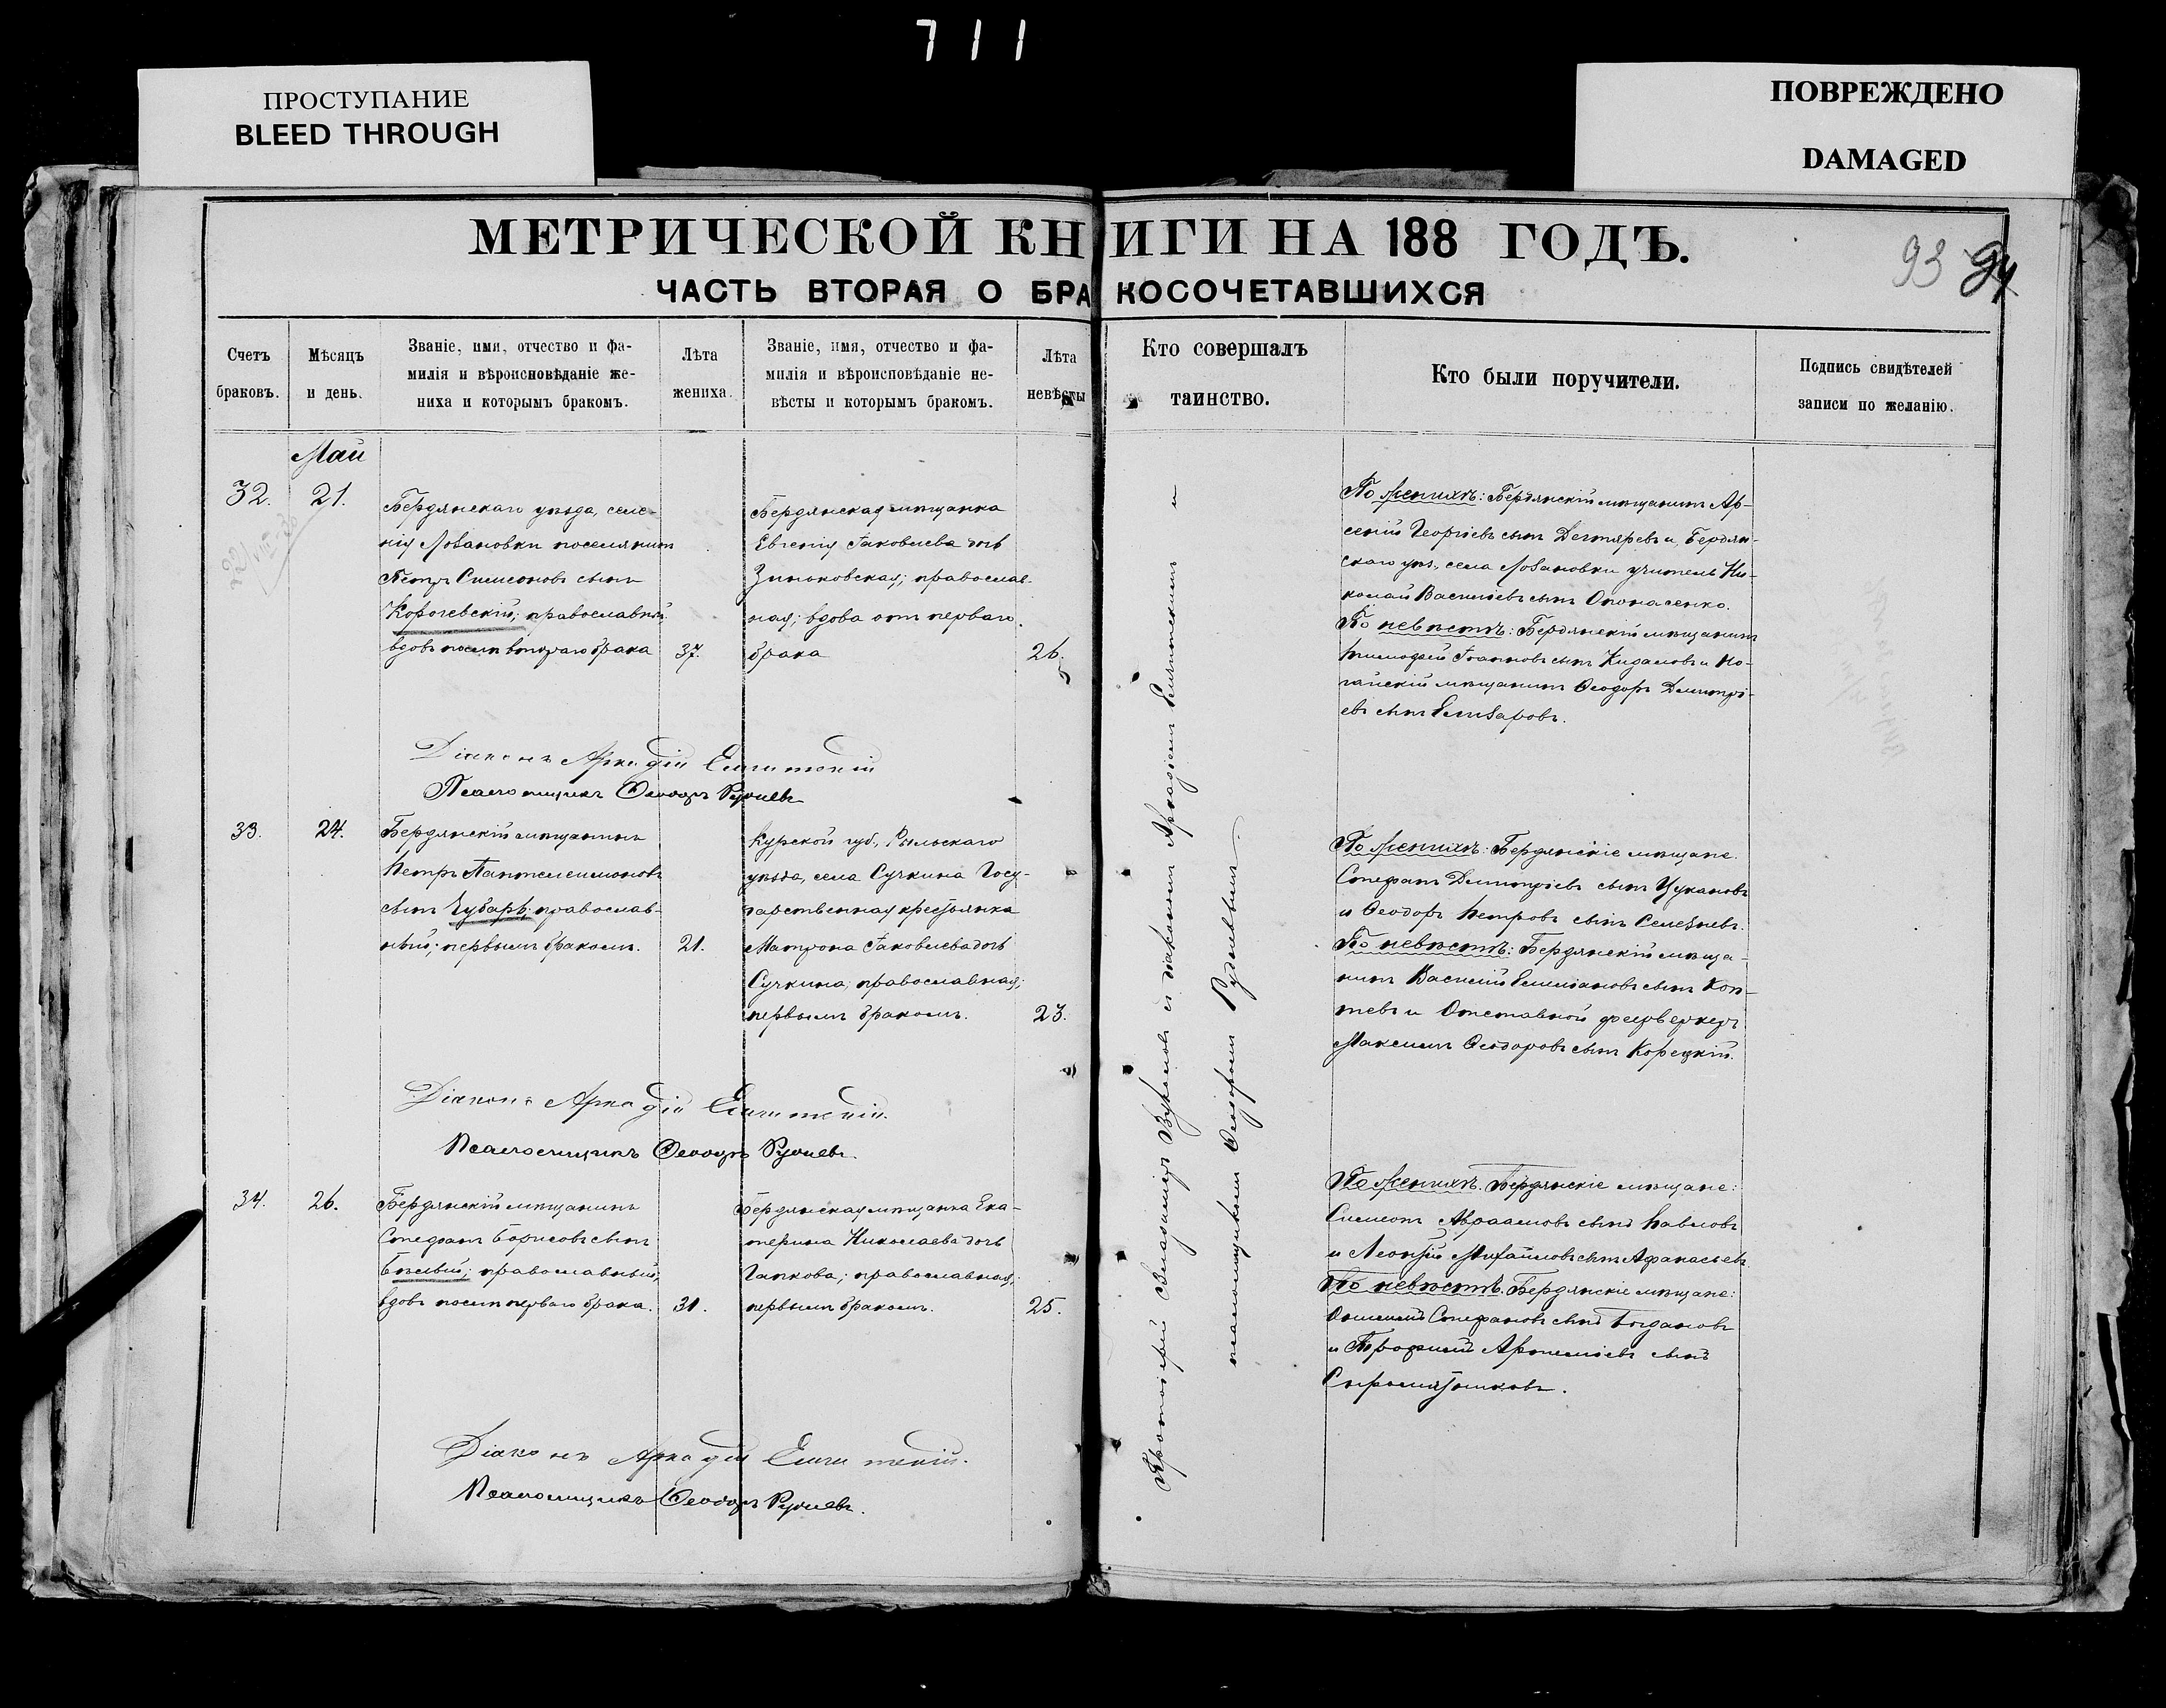 711
ПРОСТУПАНИЕ
BLEED THROUGH
ПОВРЕЖДЕНО
DAMAGED
МЕТРИЧЕСКОЙ КНИГИ НА 188 ГОДЪ.
93 94
ЧАСТЬ ВТОРАЯ О БРАКОСОЧЕТАВШИХСЯ
Счетъ
браковъ.
Мѣсяцъ
и день.
Званіе, имя, отчество и фа-
милія и вѣроисповѣданіе же-
ниха и которымъ бракомъ.
Лѣта
жениха.
Званіе, имя, отчество и фа-
милія и вѣроисповѣданіе не-
вѣсты и которымъ бракомъ.
Лѣта
невѣсты
Кто совершалъ
таинство.
Кто были поручители.
Подпись свидѣтелей
записи по желанію.
Май
32.
21.
Бердянскаго уѣзда, селе-
нія Лозановки поселянинъ
Петръ Симеоновъ сынъ
Корочевскій; православный
вдовъ послѣ втораго брака
37.
Бердянская мѣщанка
Евгенія Іаковлева дочь
Зиньковская; православ-
ная; вдова отъ перваго
брака
26.
По женихѣ: Бердянскій мѣщанинъ Ар-
сеній Георгіевъ сынъ Дегтяревъ и Бердян-
скаго уѣз., села Лозановки учитель Ни-
колай Василіевъ сынъ Опонасенко.
По невѣстѣ: Бердянскій мѣщанинъ
Тимофей Іоанновъ сынъ Кидаловъ и Но-
гайскій мѣщанинъ Ѳеодоръ Димитрі-
евъ сынъ Елизаровъ.
Діаконъ Аркадій
Псаломщикъ Ѳеодоръ
33.
24.
Бердянскій мѣщанинъ
Петръ Пантелеимоновъ
сынъ Чубарь; православ-
ный; первымъ бракомъ.
21.
Курской губ., Рыльскаго
уѣзда, села Сучкина Госу-
дарственная крестьянка
Матрона Іаковлева дочь
Сучкина; православная;
первымъ бракомъ.
23.
По женихѣ: Бердянскіе мѣщане
Стефанъ Димитріевъ сынъ Цукановъ
и Ѳеодоръ Петровъ сынъ Селезневъ.
По невѣстѣ: Бердянскій мѣща-
нинъ Василій Емеліановъ сынъ Коп-
тевъ и Отставной фейерверкеръ
Максимъ Ѳеодоровъ сынъ Корецкій.
Діаконъ Аркадій
Псаломщикъ Ѳеодоръ
34.
26.
Бердянскій мѣщанинъ
Стефанъ Борисовъ сынъ
Бѣлый; православный;
вдовъ послѣ перваго брака.
31.
Бердянская мѣщанка Ека-
терина Николаева дочь
Гапкова; православная;
первымъ бракомъ.
25.
По женихѣ. Бердянскіе мѣщане:
Симеонъ Авраамовъ сынъ Павловъ
и Леонтій Михайловъ сынъ Афанасьевъ.
По невѣстѣ. Бердянскіе мѣщане:
Стефановъ сынъ Богдановъ
и Трофимъ Артеміевъ сынъ
Сыромятниковъ.
Діаконъ Аркадій
Псаломщикъ Ѳеодоръ
Протоіерей съ діакономъ Аркадіемъ и
псаломщикомъ Ѳеодоромъ